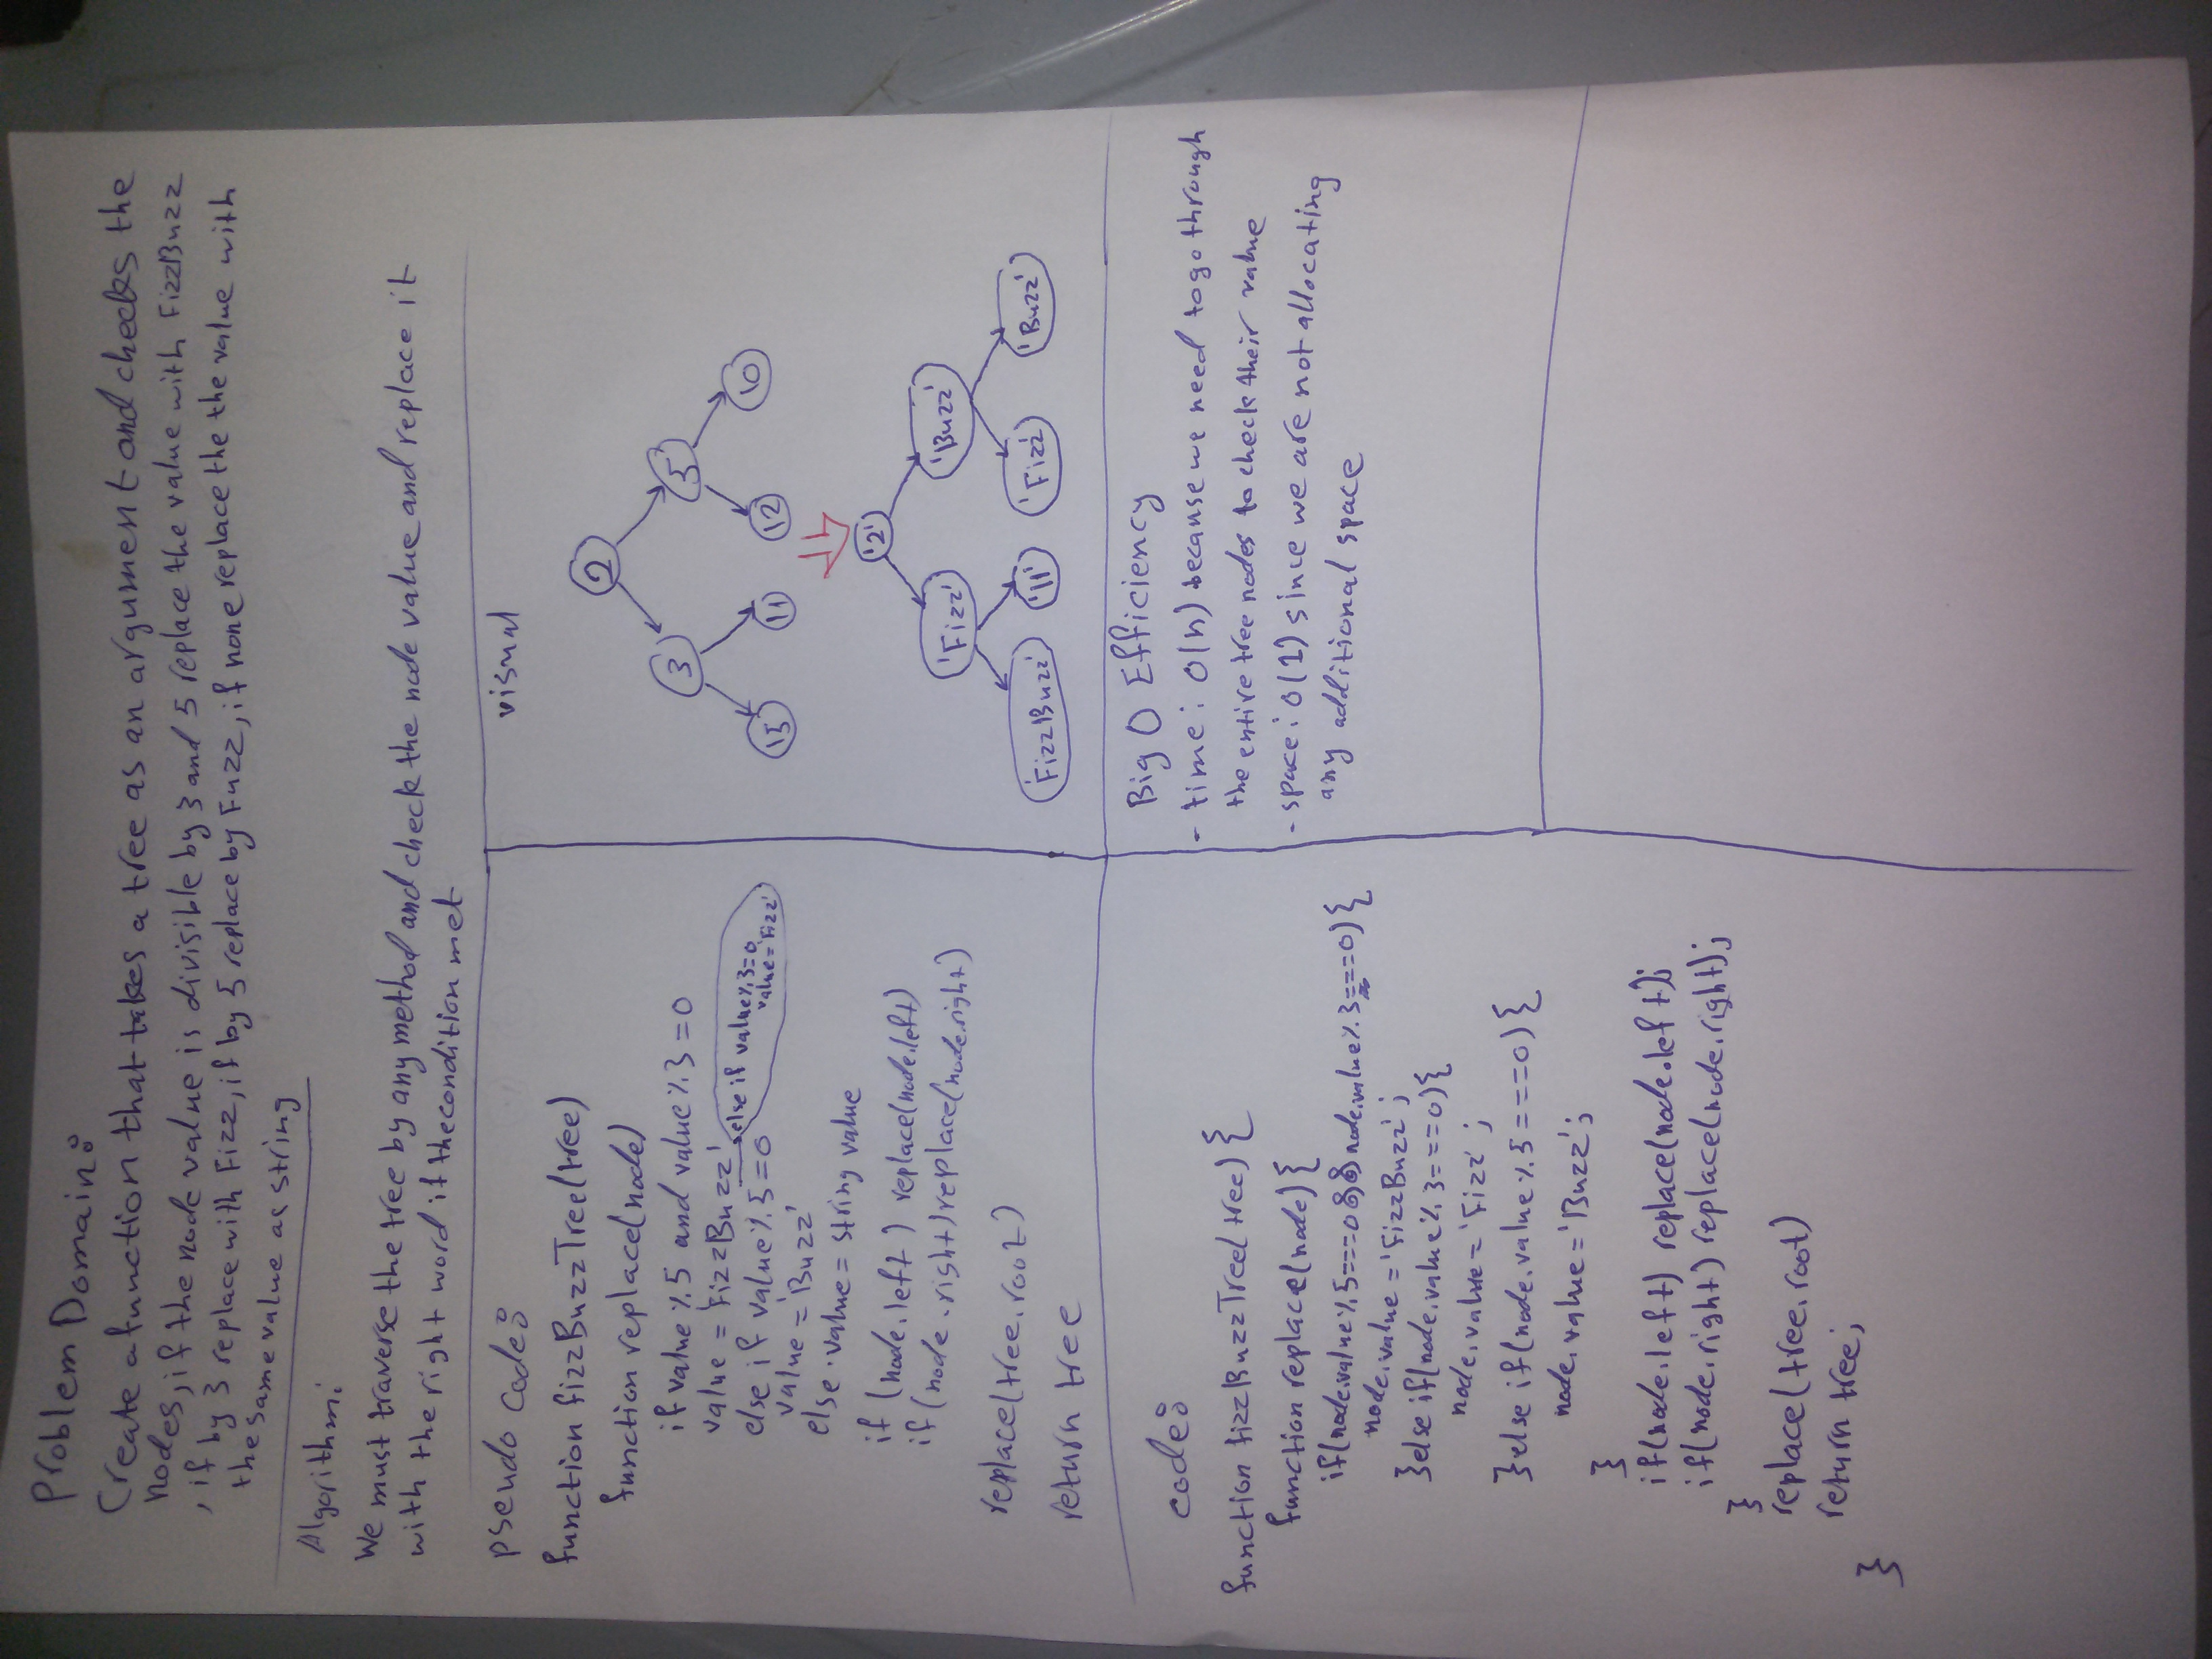 Problem Domain:
Create a function that takes a tree as an argument and checks the
nodes, if the node value is divisible by 3 and 5 replace the value with FizzBuzz
, if by 3 replace with Fizz, if by 5 replace by Fuzz, if none replace the the value with
the same value as string
Algorithm:
We must traverse the tree by any method and check the node value and replace it
with the right word if the condition met
pseudo code:
function fizzBuzzTree(tree)
function replace(node)
if value % 5 and value % 3 = 0
value = 'FizzBuzz'
else if value % 3 = 0
value = 'Fizz'
else if value % 5 = 0
value = 'Buzz'
else value = string value
if (node.left) replace(node.left)
if (node.right) replace(node.right)
replace(tree.root)
return tree
visual
2
3 5
15 11 12 10
'2'
'Fizz' 'Buzz'
'FizzBuzz' '11' 'Fizz' 'Buzz'
code:
function fizzBuzzTree(tree){
function replace(node){
if(node.value % 5===0 && node.value % 3===0){
node.value = 'FizzBuzz';
}else if(node.value % 3===0){
node.value = 'Fizz';
}else if(node.value % 5===0){
node.value = 'Buzz';
}
if(node.left) replace(node.left);
if(node.right) replace(node.right);
}
replace(tree.root)
return tree;
}
Big O Efficiency
- time: O(n) because we need to go through
the entire tree nodes to check their value
- space: O(1) since we are not allocating
any additional space